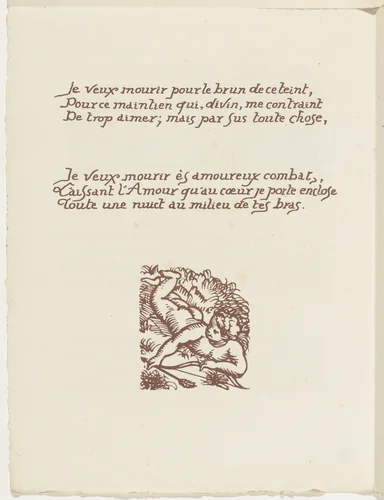 Je veux mourir pour le brun de ce teint,
Pour ce maintien qui, divin, me contraint
De trop aimer; mais par sus toute chose,
Je veux mourir ès amoureux combats,
Laissant l'Amour qu'au cœur je porte enclose
Toute une nuit au milieu de tes bras.